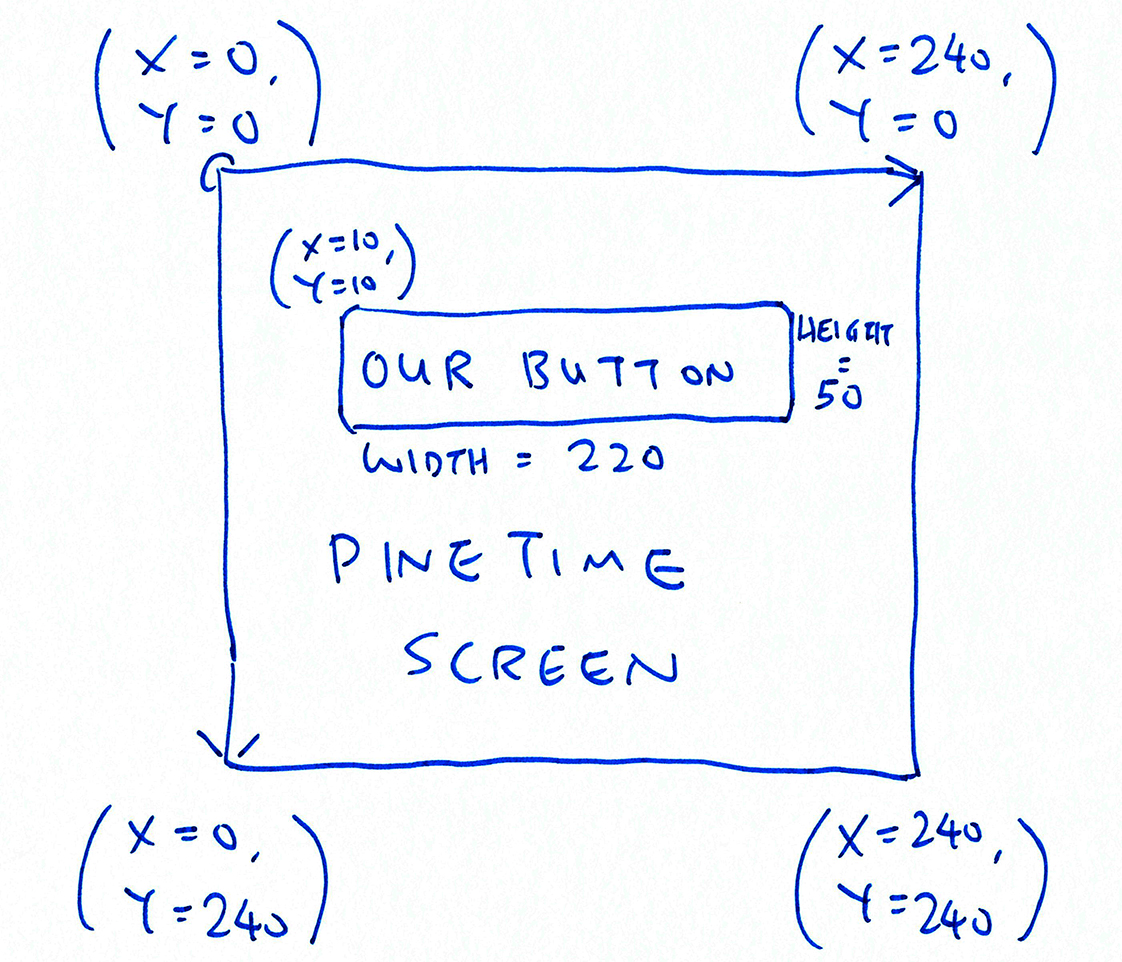 (X=0,
Y=0)
(X=240,
Y=0)
(X=10,
Y=10)
OUR BUTTON
HEIGHT
=
50
WIDTH = 220
PINETIME
SCREEN
(X=0,
Y=240)
(X=240,
Y=240)